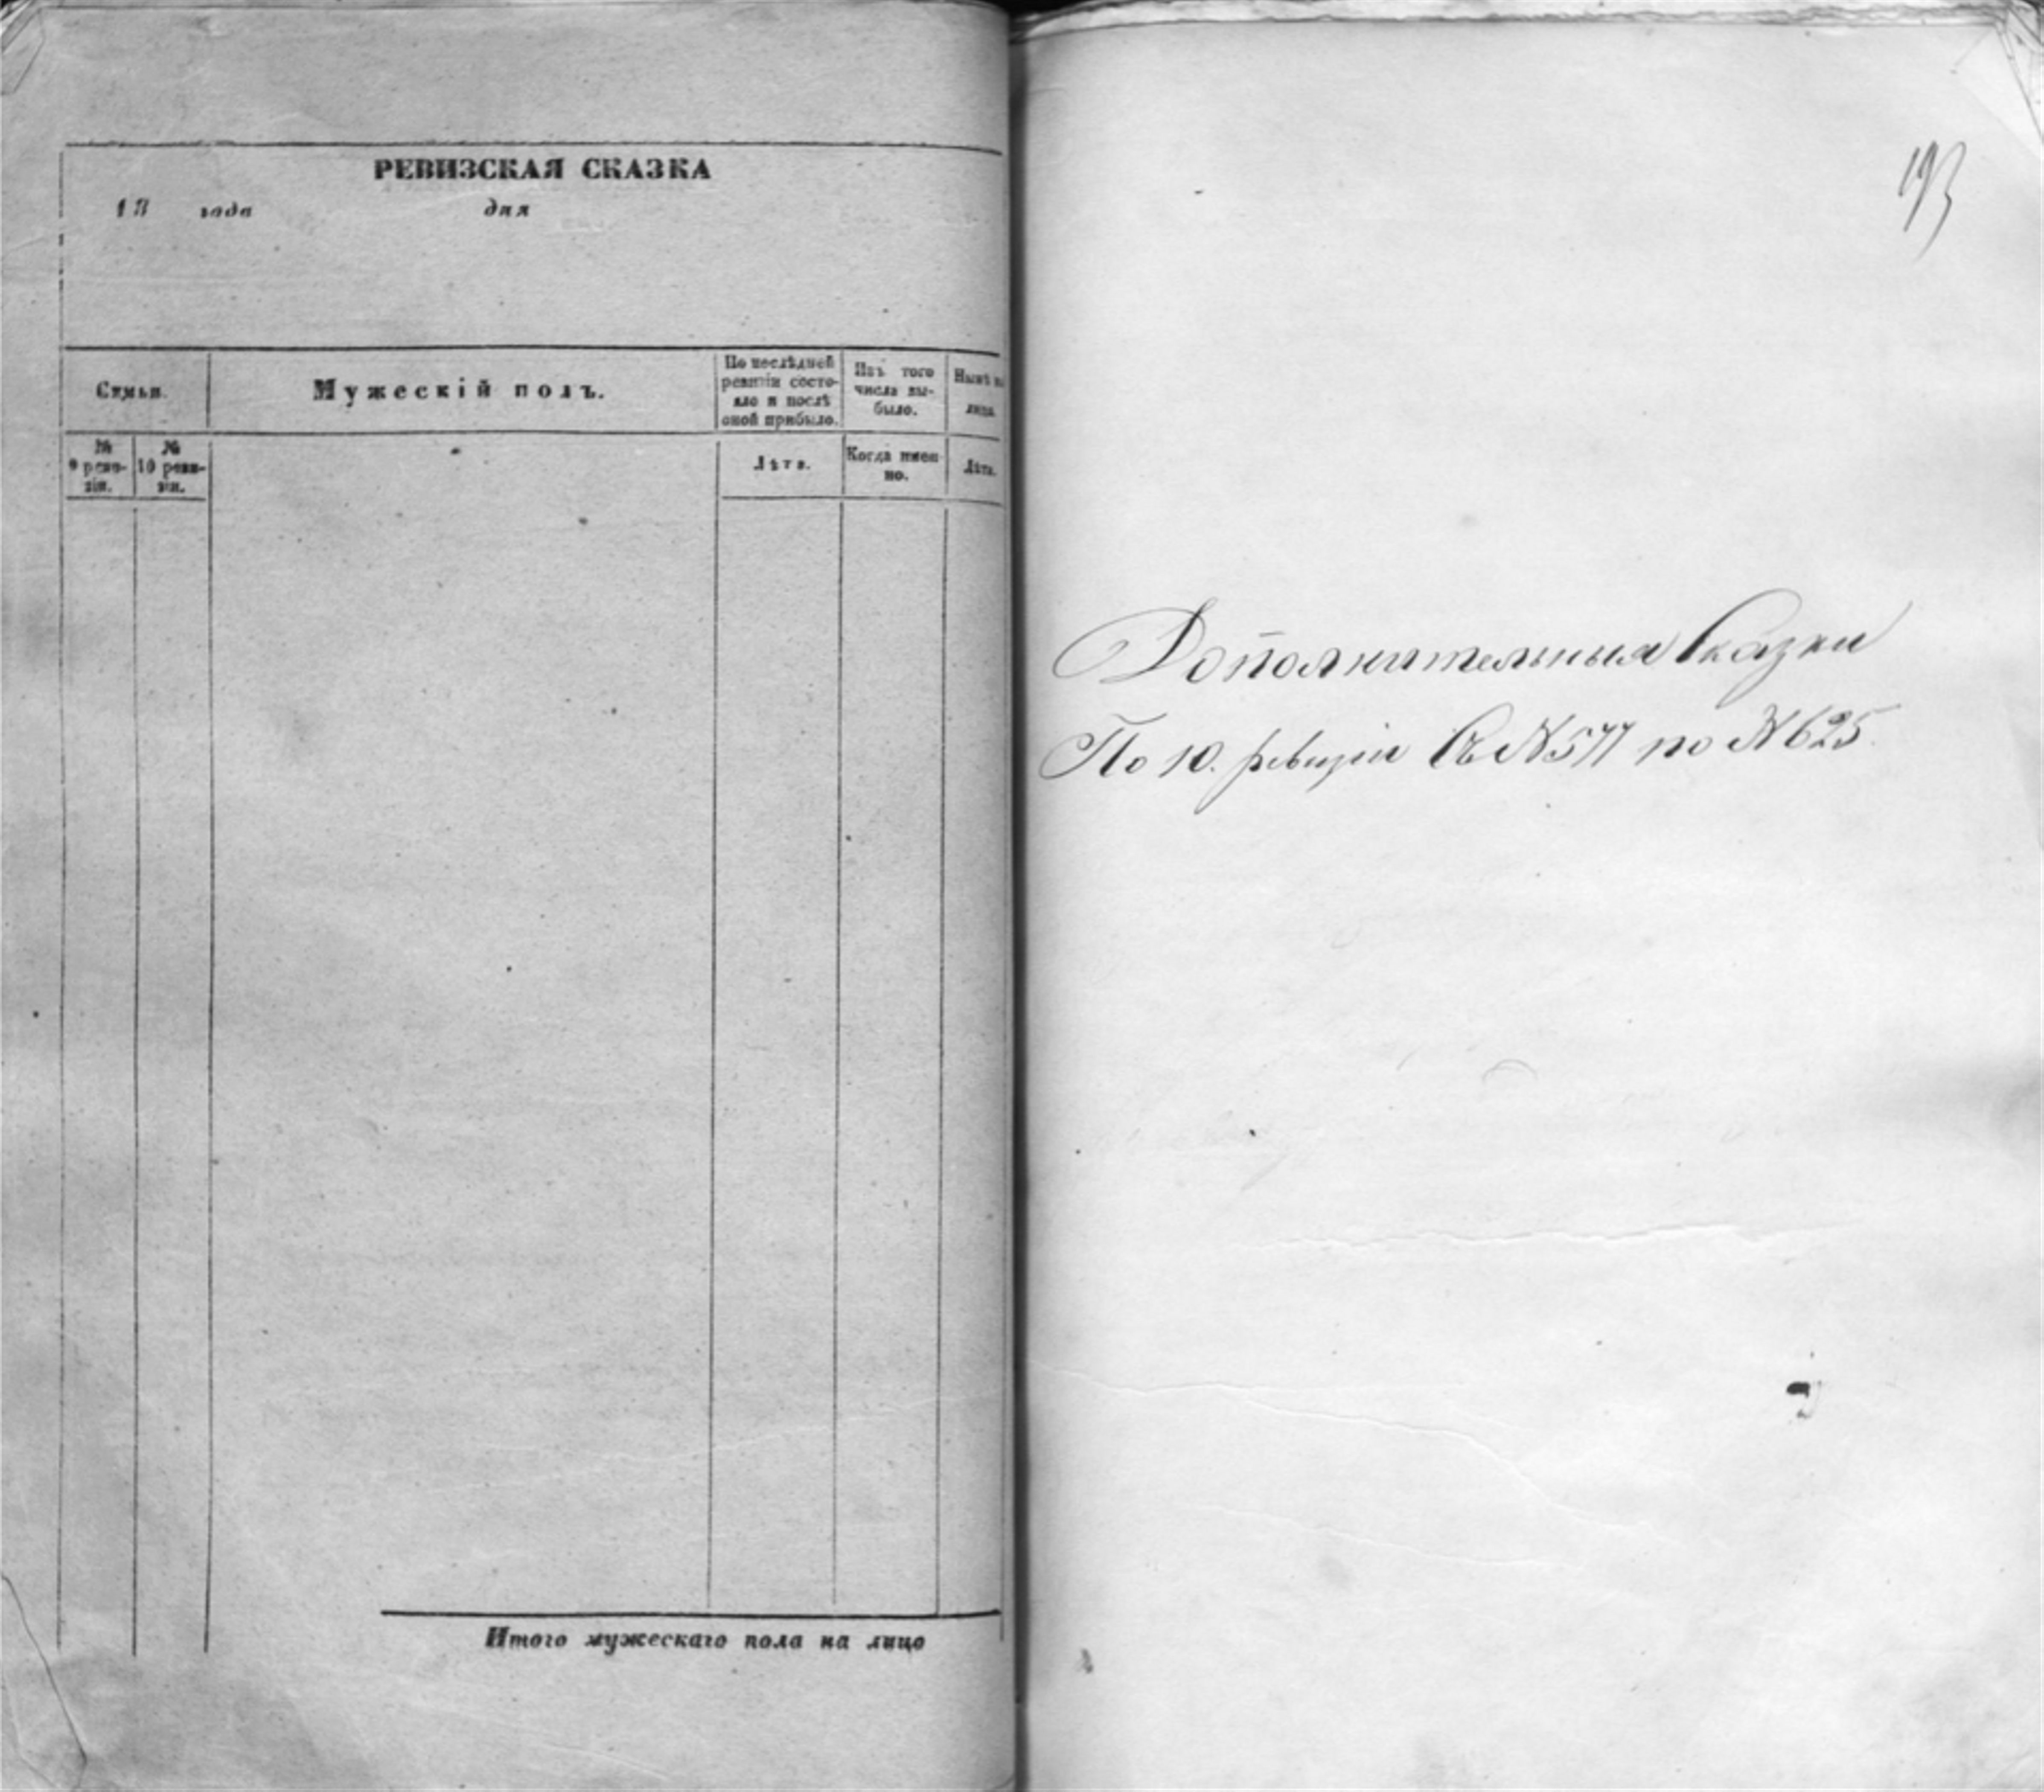 РЕВИЗСКАЯ СКАЗКА
18 года дня
Семьи.
Мужескій полъ.
По послѣдней
ревизіи состо-
яло и послѣ
оной прибыло.
Изъ того
числа вы-
было.
Нынѣ на
лицо.
№
9 реви-
зіи.
№
10 реви-
зіи.
Лѣта.
Когда имен-
но.
Лѣта.
Итого мужескаго пола на лицо
193
Дополнительныя Сказки
По 10. ревизіи Съ № 577 по № 625.